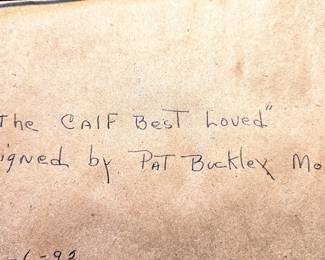 The CAlF BesT Loved"
igned by PAT Buckley Mo
-92